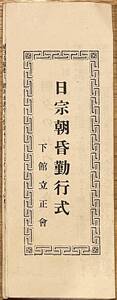 日宗朝昏勤行式
下館立正會